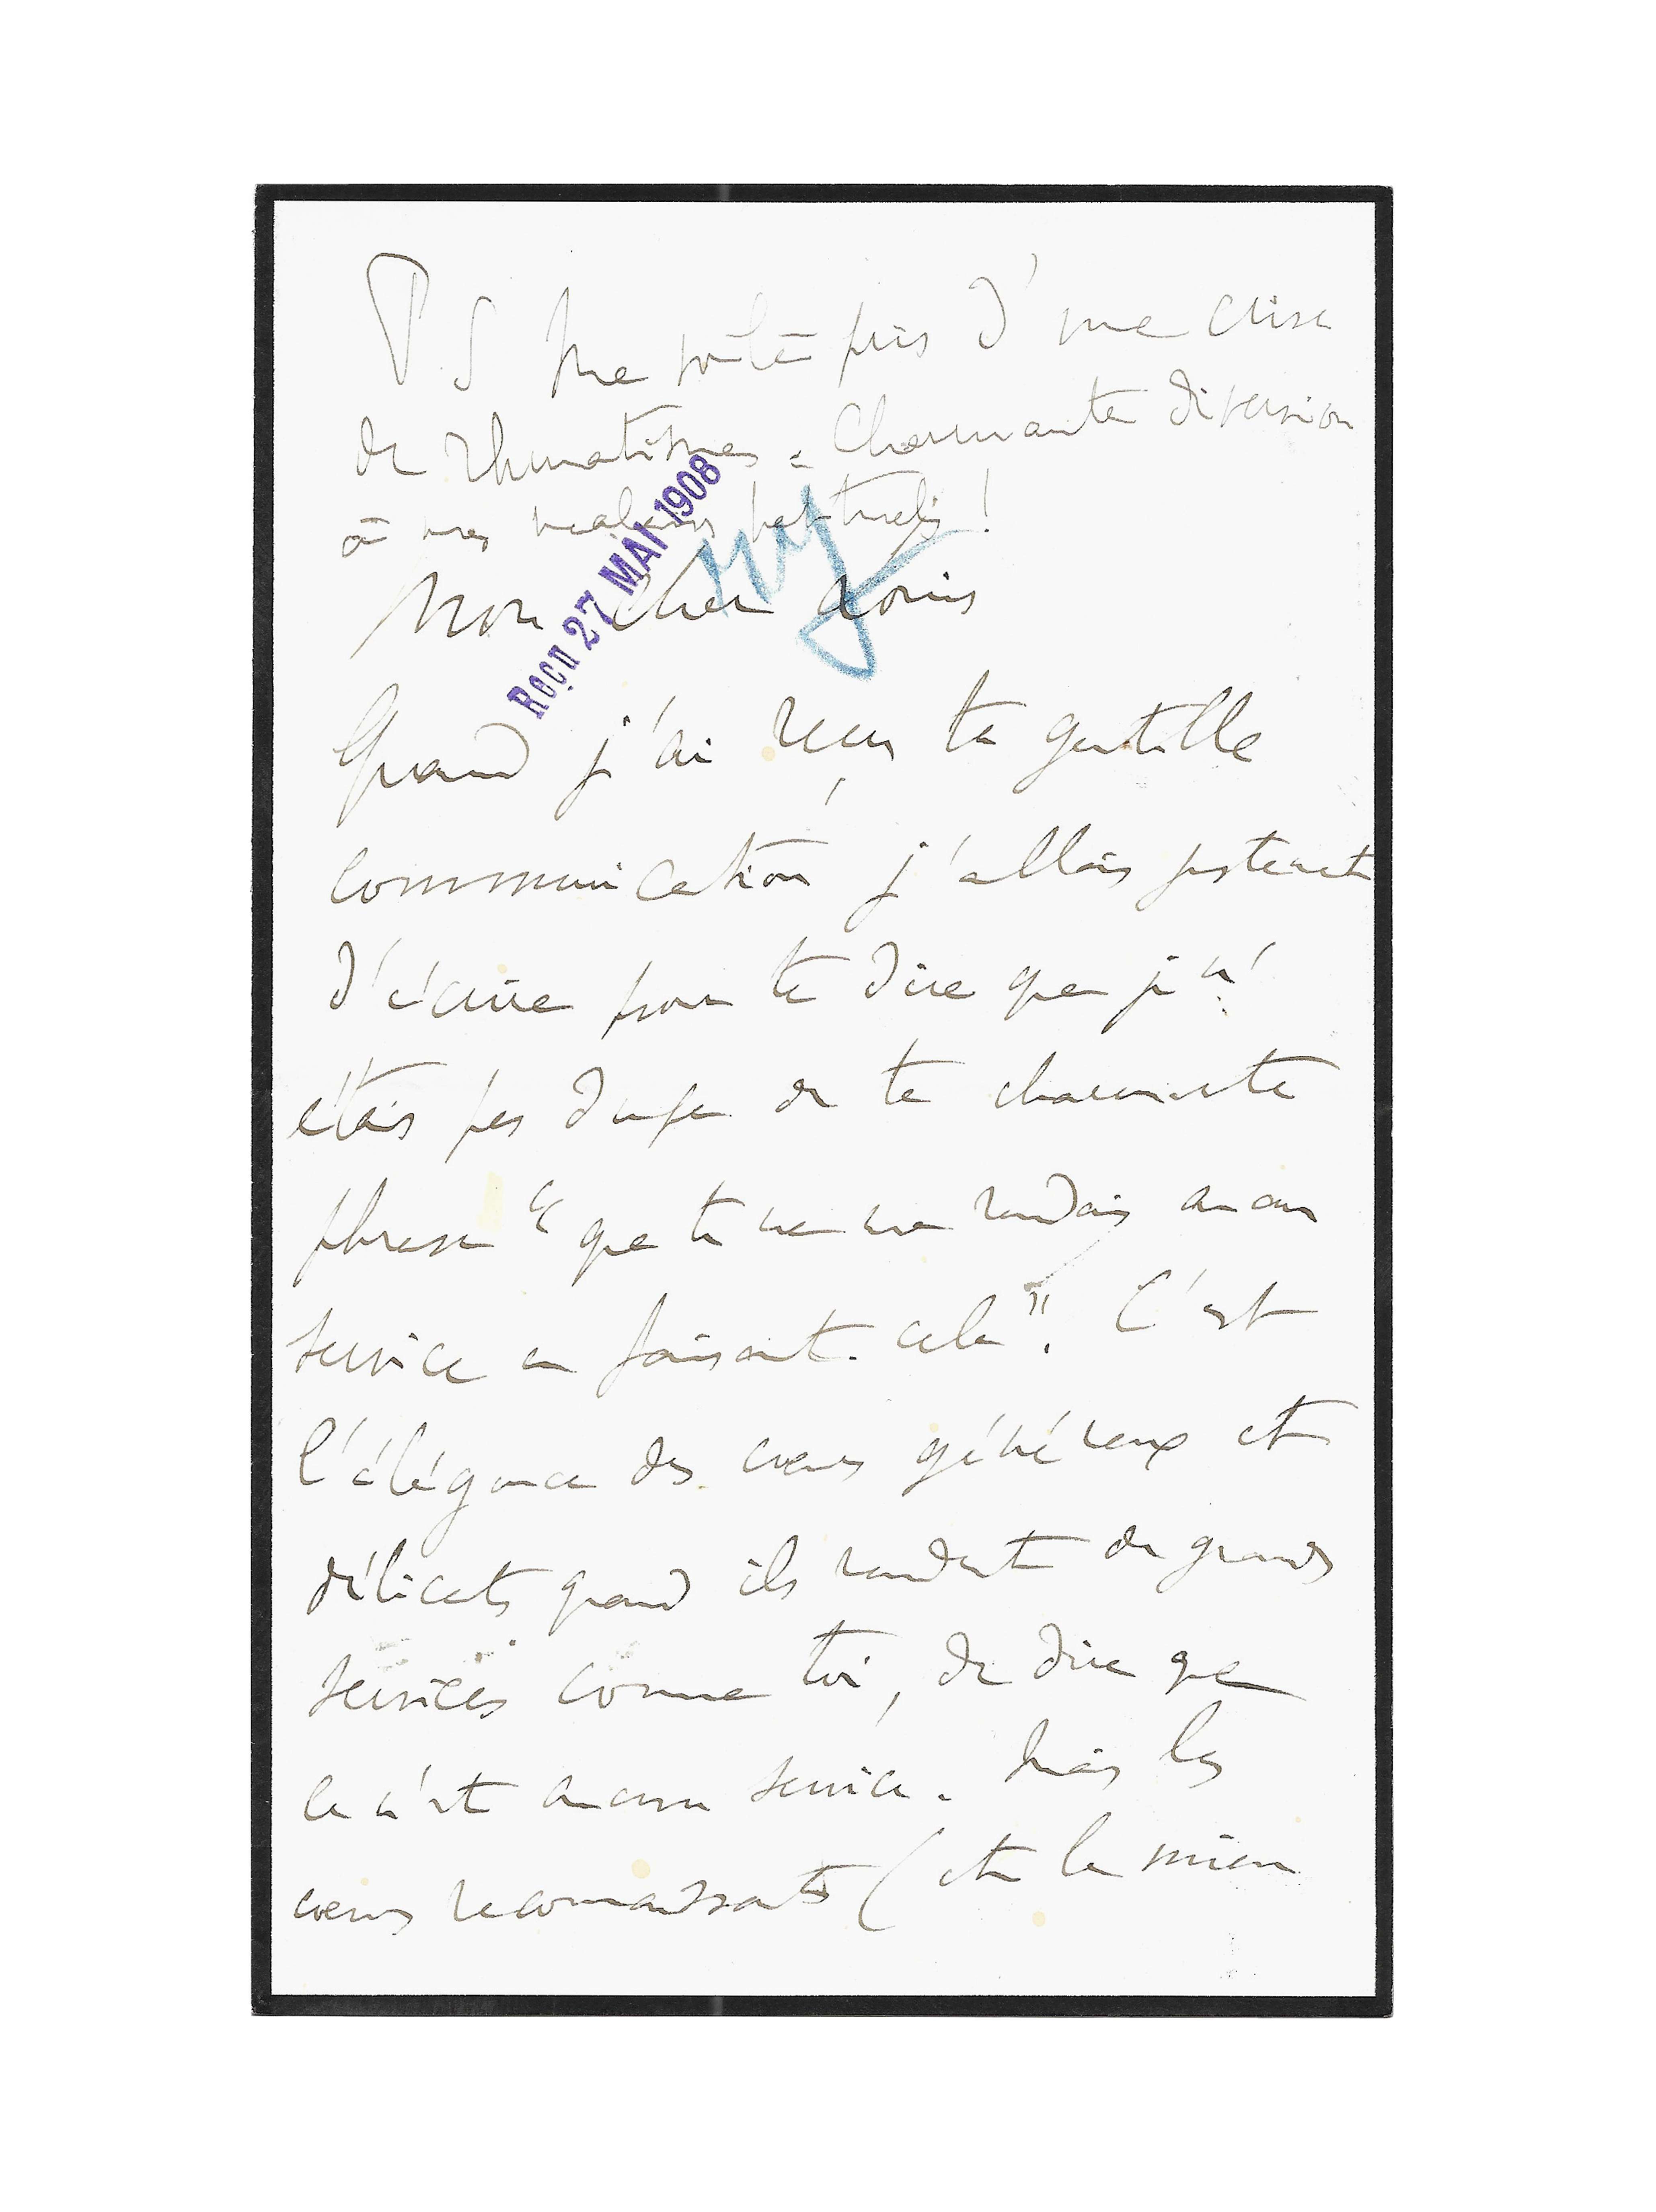 P.S Me voilà pris d'une crise
de rhumatismes. Charmante diversion
à mes malaises habituels !
Reçu 27 MAI 1908
Mon cher Louis
Quand j'ai reçu ta gentille
communication j'allais justement
t'écrire pour te dire que je n'
étais pas dupe de ta charmante
phrase " que tu ne me rendais aucun
service en faisant cela ". C'est
l'élégance des cœurs généreux et
délicats quand ils rendent de grands
services comme toi, de dire que
ce n'est aucun service. Mais les
cœurs reconnaissants (et le mien